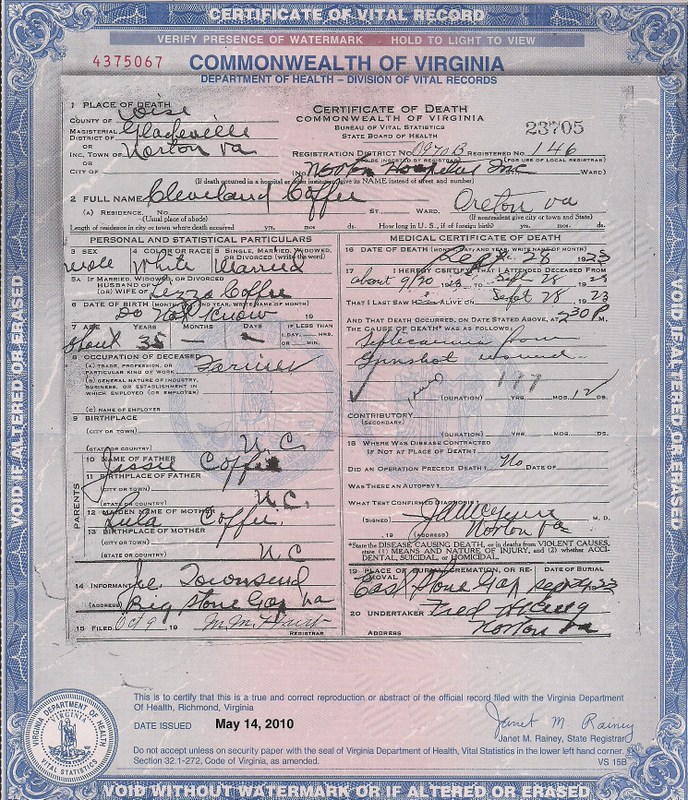 CERTIFICATE OF VITAL RECORD
VERIFY PRESENCE OF WATERMARK HOLD TO LIGHT TO VIEW
4375067
COMMONWEALTH OF VIRGINIA
DEPARTMENT OF HEALTH – DIVISION OF VITAL RECORDS
VOID IF ALTERED OR ERASED
VOID IF ALTERED OR ERASED
1 PLACE OF DEATH
COUNTY OF Wise
MAGISTERIAL DISTRICT OF Gladeville
OR
INC. TOWN OF Norton Va
OR
CITY OF
CERTIFICATE OF DEATH
COMMONWEALTH OF VIRGINIA
BUREAU OF VITAL STATISTICS
STATE BOARD OF HEALTH
23705
REGISTRATION DISTRICT NO. 0970B REGISTERED NO. 146
(TO BE INSERTED BY REGISTRAR) (FOR USE OF LOCAL REGISTRAR)
(No. Norton Hospital Inc WARD)
(If death occurred in a hospital or other institution, give its NAME instead of street and number)
2 FULL NAME Cleveland Coffee
(A) RESIDENCE No. ST. WARD. Oreton Va
(Usual place of abode) (If nonresident give city or town and State)
Length of residence in city or town where death occurred yrs. mos. ds. How long in U. S., if of foreign birth? yrs. mos. ds.
PERSONAL AND STATISTICAL PARTICULARS
3 SEX 4 COLOR OR RACE 5 SINGLE, MARRIED, WIDOWED, OR DIVORCED (write the word)
male White Married
5A IF MARRIED, WIDOWED, OR DIVORCED
HUSBAND OF
(OR) WIFE OF Lizza Coffee
6 DATE OF BIRTH (MONTH, DAY AND YEAR, WRITE NAME OF MONTH)
Do Not Know 19
7 AGE YEARS MONTHS DAYS IF LESS THAN 1 DAY, HRS. OR MIN.
about 35
8 OCCUPATION OF DECEASED
(A) TRADE, PROFESSION, OR PARTICULAR KIND OF WORK Farmer
(B) GENERAL NATURE OF INDUSTRY, BUSINESS, OR ESTABLISHMENT IN WHICH EMPLOYED (OR EMPLOYER)
(C) NAME OF EMPLOYER
9 BIRTHPLACE
(CITY OR TOWN)
(STATE OR COUNTRY) N.C.
PARENTS
10 NAME OF FATHER
Jessie Coffee
11 BIRTHPLACE OF FATHER
(CITY OR TOWN)
(STATE OR COUNTRY) N.C.
12 MAIDEN NAME OF MOTHER
Lula Coffee
13 BIRTHPLACE OF MOTHER
(CITY OR TOWN)
(STATE OR COUNTRY) N.C
14 INFORMANT Joe. Townsend
(ADDRESS) Big Stone Gap Va
15 FILED Oct 9 19
REGISTRAR
MEDICAL CERTIFICATE OF DEATH
16 DATE OF DEATH (MONTH, DAY AND YEAR, WRITE NAME OF MONTH)
Sept. 28 1923
17 I HEREBY CERTIFY THAT I ATTENDED DECEASED FROM
about 9/20 1923 TO Sept 28 1923
THAT I LAST SAW H ALIVE ON Sept 28 1923
AND THAT DEATH OCCURRED, ON DATE STATED ABOVE, AT 2 30 P M.
THE CAUSE OF DEATH* WAS AS FOLLOWS:
Septecaemia from
Gunshot wound
197
(DURATION) YRS. MOS. 12 DS.
CONTRIBUTORY
(SECONDARY)
(DURATION) YRS. MOS. DS.
18 WHERE WAS DISEASE CONTRACTED
IF NOT AT PLACE OF DEATH?
DID AN OPERATION PRECEDE DEATH? No DATE OF
WAS THERE AN AUTOPSY?
WHAT TEST CONFIRMED DIAGNOSIS?
(SIGNED) M. D.
, 19 (ADDRESS) Norton Va
*State the DISEASE, CAUSING DEATH, or in deaths from VIOLENT CAUSES, state (1) MEANS AND NATURE OF INJURY, and (2) whether ACCIDENTAL, SUICIDAL, or HOMICIDAL.
19 PLACE OF BURIAL, CREMATION, OR REMOVAL DATE OF BURIAL
East Stone Gap Sept 29, 23
20 UNDERTAKER Fred
ADDRESS Norton Va
This is to certify that this is a true and correct reproduction or abstract of the official record filed with the Virginia Department
Of Health, Richmond, Virginia
DATE ISSUED May 14, 2010
Janet M. Rainey
Janet M. Rainey, State Registrar
Do not accept unless on security paper with the seal of Virginia Department of Health, Vital Statistics in the lower left hand corner.
Section 32.1-272, Code of Virginia, as amended.
VS 15B
VIRGINIA DEPARTMENT OF HEALTH
VIRGINIA
VITAL STATISTICS
VOID WITHOUT WATERMARK OR IF ALTERED OR ERASED